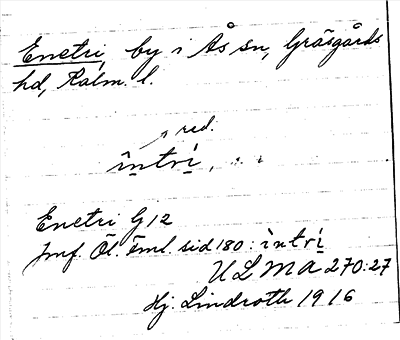 Enetri, by i Ås sn, Gräsgårds
hd, Kalm. l.
red.
ìntri̠,
Enetri G 12
Jmf. Öl. öml. sid 180: ìntri̠
ULMA 270:27
Hj. Lindroth 1916